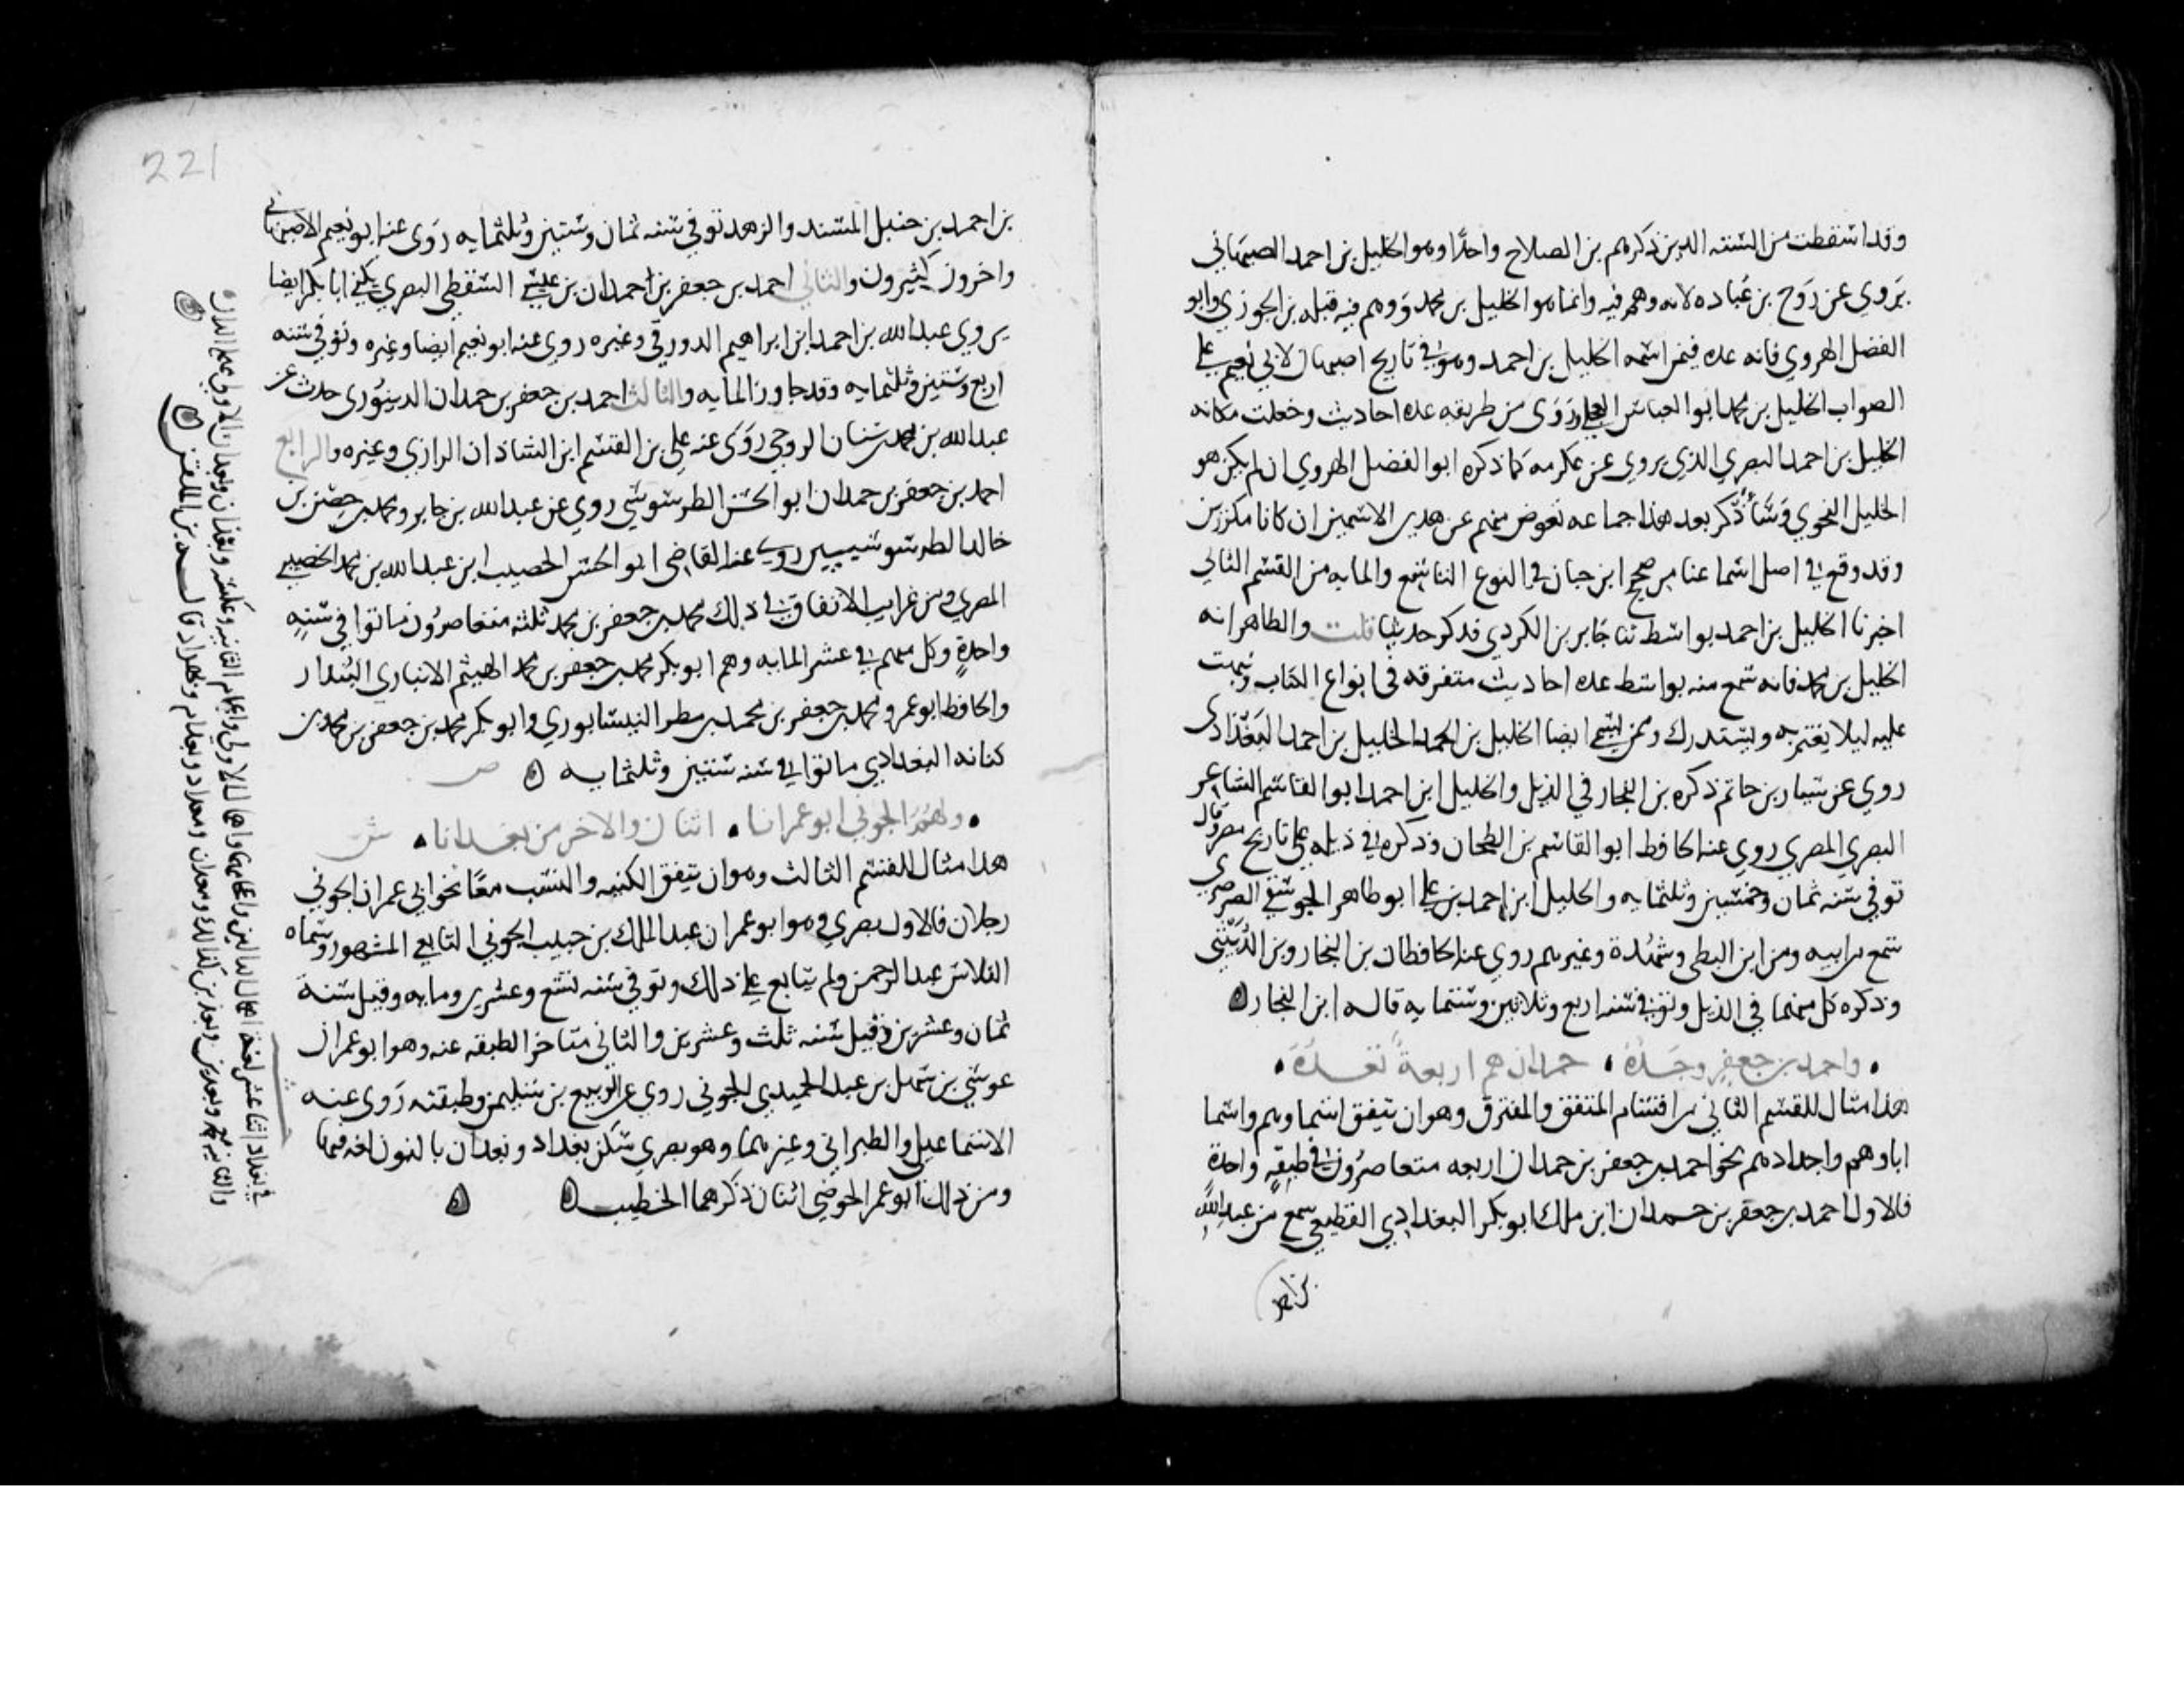 وقد اسقطت من الستة الذين ذكرهم بن الصلاح واحدًا وهو الخليل بن احمد الاصبهاني
يروي عن رَوح بن عُباده لانه وهم فيه وانما هو الخليل بن محمد ووهم فيه قبله بن الجوزي وابو
الفضل الهروي فانه عده فيمن اسمه الخليل بن احمد وهو في تاريخ اصبهان لابي نعيم على
الصواب الخليل بن محمد ابو العباس العجلي وَرَوى من طريقه عدة احاديث وجعلت مكانه
الخليل بن احمد البصري الذي يروي عن عكرمه كما ذكره ابو الفضل الهروي ان لم يكن هو
الخليل النحوي وسأذكر بعد هذا جماعه تعوض منهم عن هذين الاسمين ان كانا مكررين
وقد وقع في اصل سماعنا من صحيح ابن حبان في النوع التاسع والمايه من القسم الثاني
اخبرنا الخليل بن احمد بواسط ثنا جابر بن الكردي فذكر حديثا قلت والظاهر انه
الخليل بن محمد فانه سمع منه بواسط عده احاديث متفرقه في انواع الكتاب ونبهت
عليه ليلا يغتر به ويستدرك وممن يسمى ايضا الخليل بن احمد الخليل بن احمد البغدادي
روي عن سيار بن حاتم ذكره بن النجار في الذيل والخليل ابن احمد ابو القاسم الشاعر
البصري المصري روي عنه الحافظ ابو القاسم بن الطحان وذكره في ذيله على تاريخ مصر وقال
توفي سنه ثمان وخمسين وثلثمايه والخليل ابن احمد بن علي ابو طاهر الجوسقي الصرصري
سمع من ابيه ومن ابن البطي وشُهْدة وغيرهم روي عنه الحافظان بن النجار وبن الدُبَيْثي
وذكره كل منهما في الذيل وتوفي سنه اربع وثلاثين وستمايه قاله ابن النجار
واحمد بن جعفر وجَدُّهُ حمدان هم اربعةٌ تَعُدُّهُ
هذا مثال للقسم الثاني من اقسام المتفق والمفترق وهو ان يتفق اسماوهم واسما
اباوهم واجدادهم نحو احمد بن جعفر بن حمدان اربعه متعاصرُون في طبقةٍ واحدةٍ
فالاول احمد بن جعفر بن حمدان ابن ملك ابو بكر البغدادي القطيعي سمع من عبد الله
بن احمد
221
بن احمد بن حنبل المسند والزهد توفي سنه ثمان وستين وثلثمايه رَوَى عنه ابو نعيم الاصبهاني
واخرون كثيرون والثاني احمد بن جعفر بن احمدان بن عيسى السقطي البصري يكني ابا بكر ايضا
يروي عبد الله بن احمد ابن ابراهيم الدورقي وغيره روي عنه ابو نعيم ايضا وغيره وتوفي سنه
اربع وستين وثلثمايه وقد جاوز المايه والثالث احمد بن جعفر بن حمدان الدينوري حدث عن
عبد الله بن محمد بن سنان الروحي رَوَى عنه علي بن القسم ابن الشاذان الرازي وغيره والرابع
احمد بن جعفر بن حمدان ابو الحسن الطرسوسي روي عن عبد الله بن جابر ومحمد بن حصن بن
خالد الطرسوسيين روى عنه القاضي ابو الحسن الخصيب ابن عبد الله بن محمد الخصيبي
المصري ومن غرايب الاتفاق في ذلك محمد بن جعفر بن محمد ثلثه متعاصرُون ماتوا في سنةٍ
واحدةٍ وكل منهم في عشر المايه وهم ابو بكر محمد بن جعفر بن محمد الهيثم الانباري البُندار
والحافظ ابو عمرو محمد بن جعفر بن محمد بن مطر النيسابوري وابو بكر محمد بن جعفر بن محمد بن
كنانه البغدادي ماتوا في سنه ستين وثلثمايه
ولهُمُ الجوني ابو عمرانا اثنان والاخر من بغدانا
هذا مثال للقسم الثالث وهو ان تتفق الكنيه والنسب معًا نحو ابي عمران الجوني
رجلان فالاول بصري وهو ابو عمران عبد الملك بن حبيب الجوني التابعي المشهور وسماه
الفلاس عبد الرحمن ولم يتابع على ذلك وتوفي سنه تسع وعشرين ومايه وقيل سنة
ثمان وعشرين وقيل سنه ثلث وعشرين والثاني متاخر الطبقه عنه وهو ابو عمران
موسى بن سهل بن عبد الحميد الجوني روي عن الربيع بن سليمن وطبقته رَوى عنه
الاسماعيلي والطبراني وغيرهما وهو بصري سكن بغداد وبغدان بالنون لغه فيها
ومن ذلك ابو عمر الحوضي اثنان ذكرهما الخطيب
في بغداد اثنا عشر لغة اهمال الدالين واعجامهما واهمال الاولى واعجام الثانيه وعكسه